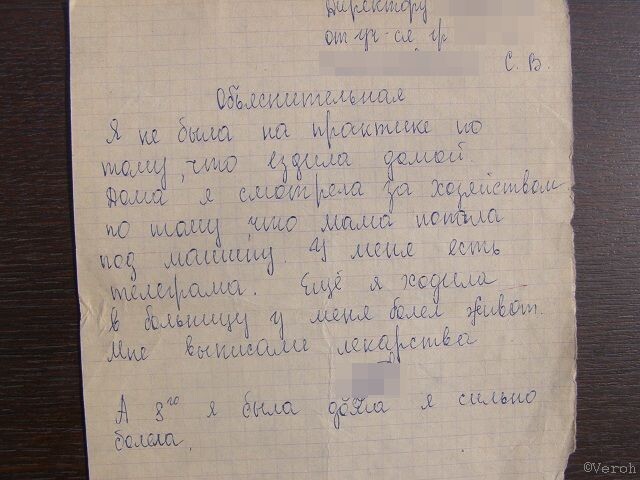 Директору
от уч-ся гр
С. В.
Объяснительная
Я не была на практике по
тому, что ездила домой.
Дома я смотрела за хозяйством
по тому, что мама попала
под машину. У меня есть
телеграма. Ещё я ходила
в больницу у меня болел живот.
Мне выписали лекарства
А 8го я была дома я сильно
болела.
©Veroh